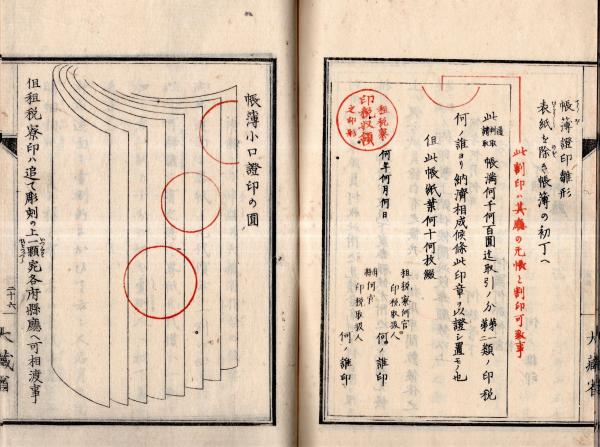 帳簿證印雛形
表紙を除き帳簿の初丁へ
此割印ハ其廳の元帳と割印可致事
此通帳判取請取帳満何千何百圓迄取引ノ分第一類第二ノ印税
何ノ誰ヨリ納濟相成候條此印章ヲ以證シ置モノ也
但此帳紙葉何十何枚綴
何年何月何日
租税寮何官
印税取扱人
何ノ誰印
縣何官
印税取扱人
何ノ誰印
租税寮
印税収領
之印形
大藏省
帳簿小口證印の圖
但租税寮印ハ追て彫刻の上一顆宛各府縣廳ヘ可相渡事
二十六
大藏省